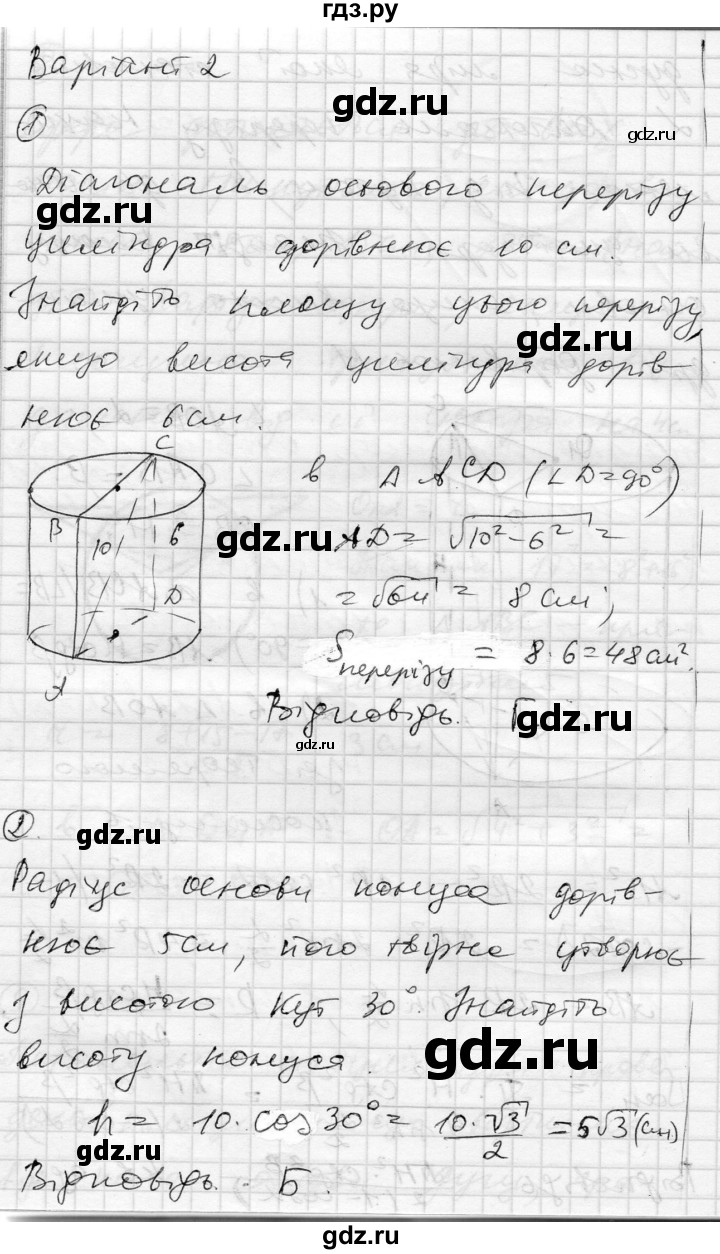 гдз.ру
Варіант 2
gdz.ru
gdz.ru
①
Діагональ осьового перерізу
gdz.ru
циліндра дорівнює 10 см.
Знайдіть площу цього перерізу,
gdz.ru
якщо висота циліндра дорів
нює 6 см.
C
в Δ ACD (∠D=90°)
B 10 6
gdz.ru
AD = √10²-6² =
D
= √64 = 8 см;
Sперерізу = 8·6=48см².
A
Відповідь. Г
gdz.ru
gdz.ru
②.
gdz.ru
Радіус основи конуса дорів-
нює 5см, його твірна утворює
gdz.ru
з висотою кут 30°. Знайдіть
висоту конуса.
gdz.ru
h = 10·cos30° = 10·√3/2 = 5√3 (см)
gdz.ru
Відповідь. Б.
gdz.ru